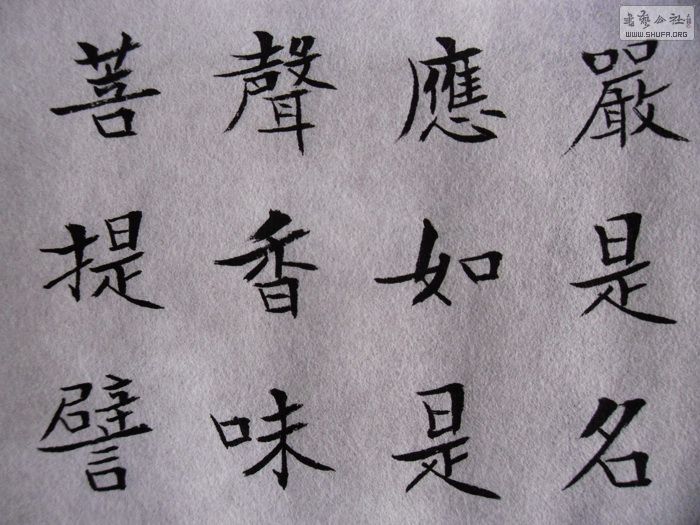 嚴是名
應如是
聲香味
菩提譬
書藝公社
WWW.SHUFA.ORG